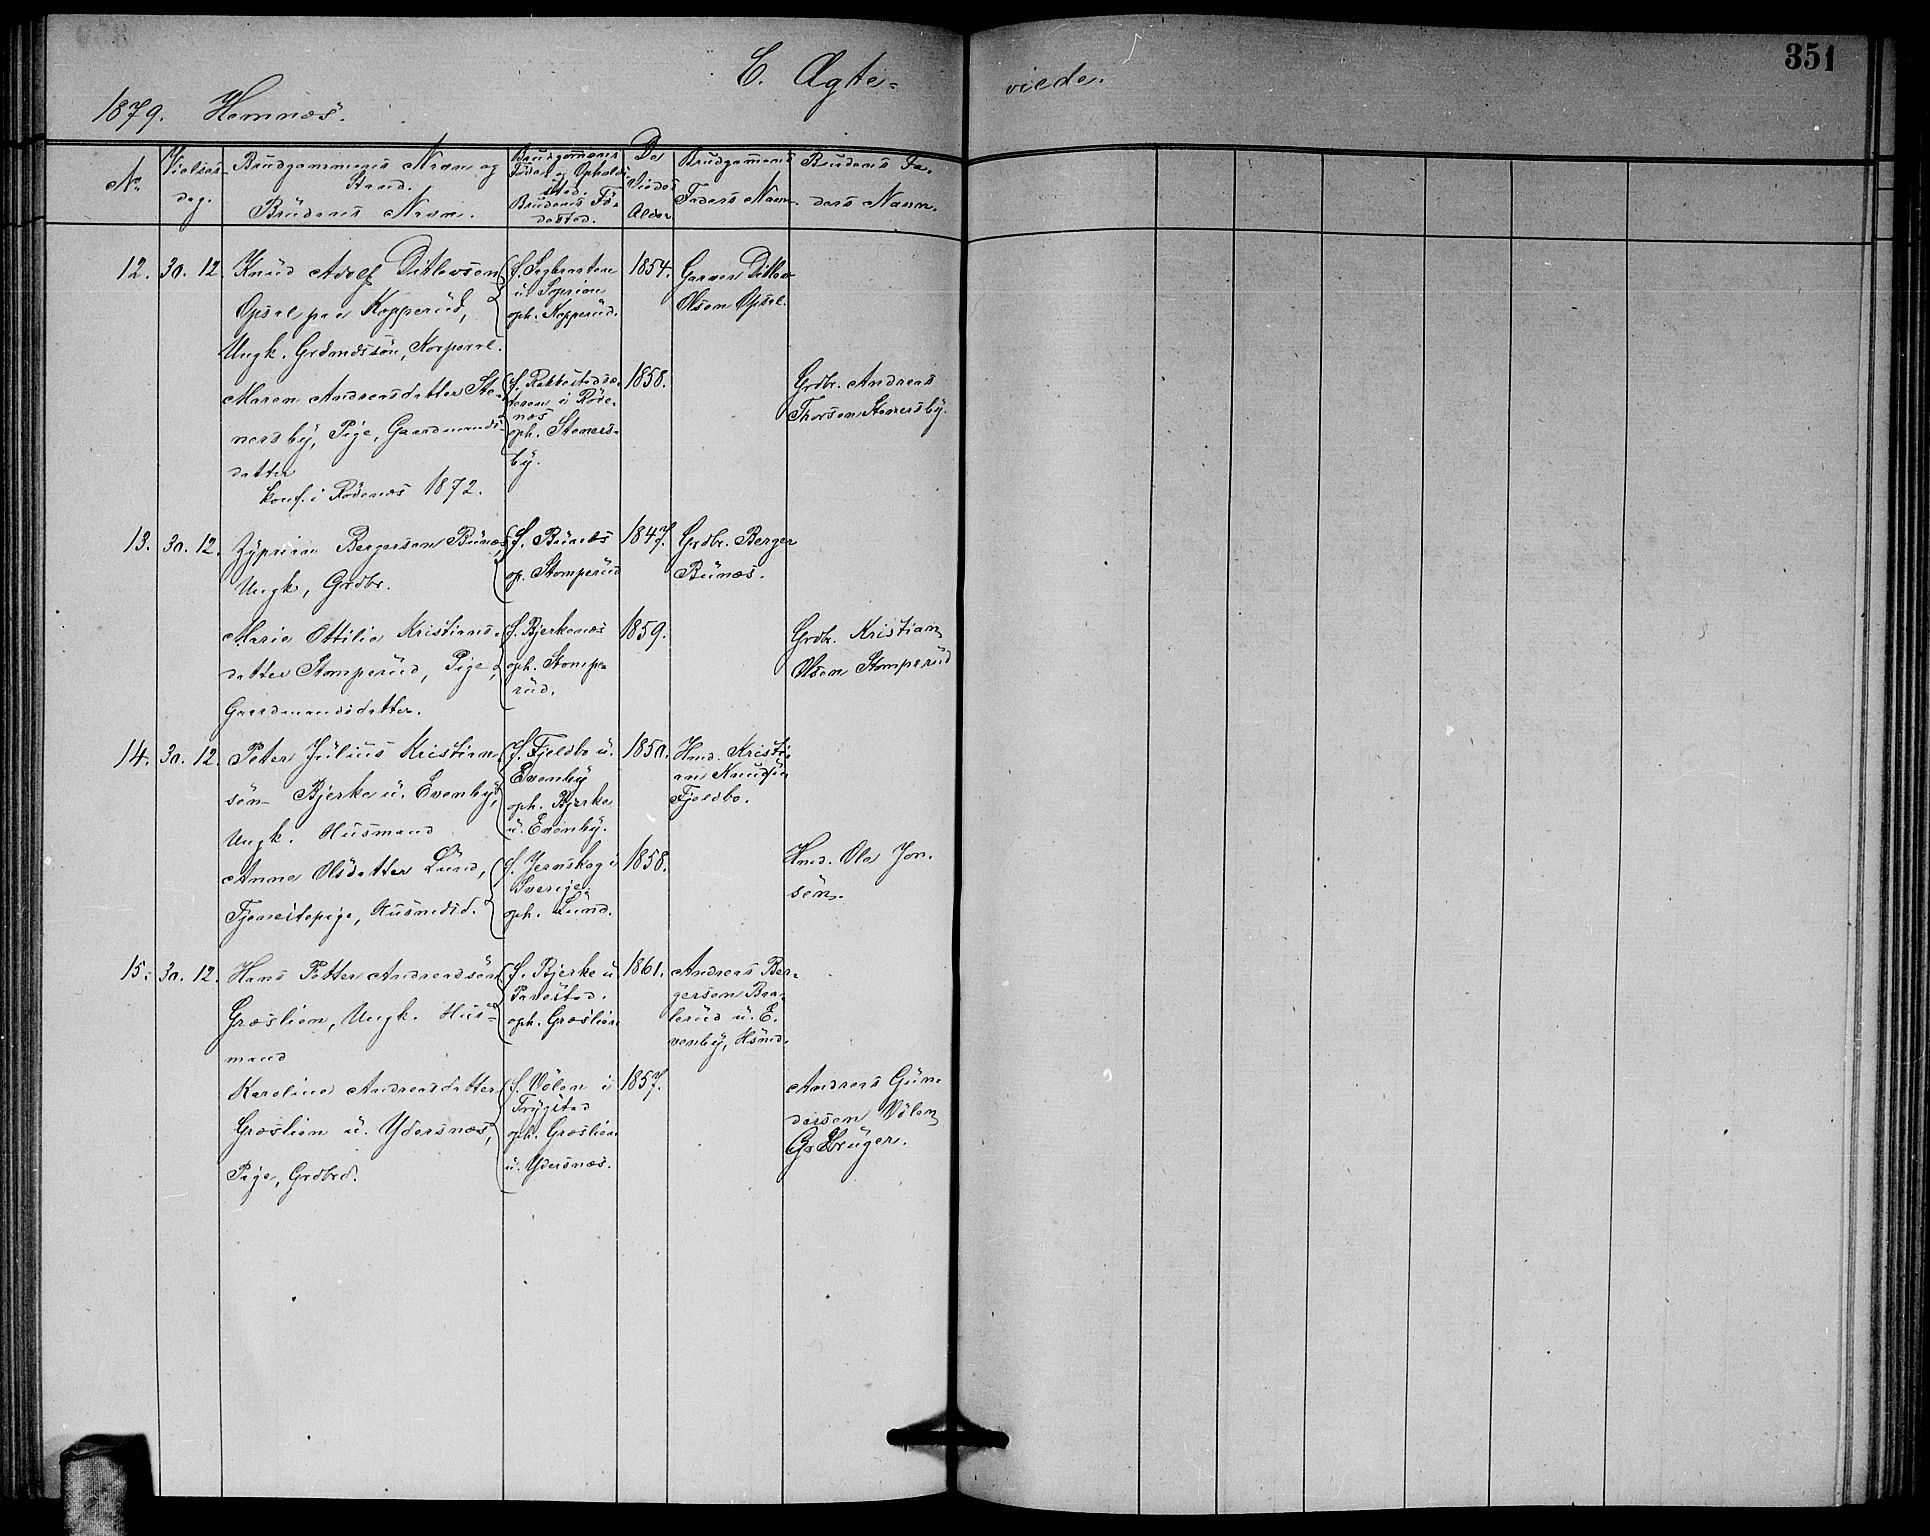 351
C. Ægte-
viede.
1879. Hemnæs.
No.
Vielses-
dag.
Brudgommens Navn og
Stand.
Brudens Navn.
Brudgommens
Føde- og Opholds-
sted.
Brudens Fø-
dested.
De
Viedes
Alder
Brudgommens
Faders Navn.
Brudens Fa-
ders Navn.
12. 30. 12
Knud Adolf Ditlevsen
Opsal paa Kopperud,
Ungk. Grdmandssøn, Korporal.
u. Soprim
oph. Kopperud.
1854.
Garver Ditlev
Olsen Opsal.
Maren Andreasdatter Ste-
nersby, Pige, Gaardmands-
datter
konf. i Rødenæs 1872.
teren i Røde-
næs
oph. Steners-
by.
1858.
Grdbr. Andreas
Thorsen Stenersby.
13. 30. 12.
Zyprian Bergersen Bunæs,
Ungk, Grdbr.
f. Bunæs
op. Stomperud
1847.
Grdbr. Berger
Bunæs.
Marie Ottilie Kristians-
datter Stomperud, Pige,
Gaardmandsdatter.
f. Bjerkenæs
oph. Stompe-
rud.
1859.
Grdbr. Kristian
Olsen Stomperud
14. 30. 12.
Peter Julius Kristian-
sen- Bjerke u. Evenby,
Ungk. Husmand
f. Fjeldbo u.
Evenby
oph. Bjerke
u. Evenby.
1850.
Hmd. Kristi-
an Knudsen
Fjeldbo.
Anne Olsdatter Lund,
Tjenestepige, Husmdsd.
f. Jernskog i
Sverige.
oph. Lund.
1858.
Hmd. Ole Jon-
sen.
15. 30. 12.
Hans Petter Andreassen
Græslien, Ungk. Hus-
mand
f. Bjerke u
oph. Græslien
1861.
Andreas Ber-
gersen Baa-
lerud u. E-
venby, Hsmd.
Karoline Andreasdatter
Græslien u. Ydersnæs,
Pige, Grdbrd.
f. Vølen i
Trygstad
oph. Græslien
u. Ydersnæs.
1857.
Andreas Gun-
dersen Vølen
Grdbruger.